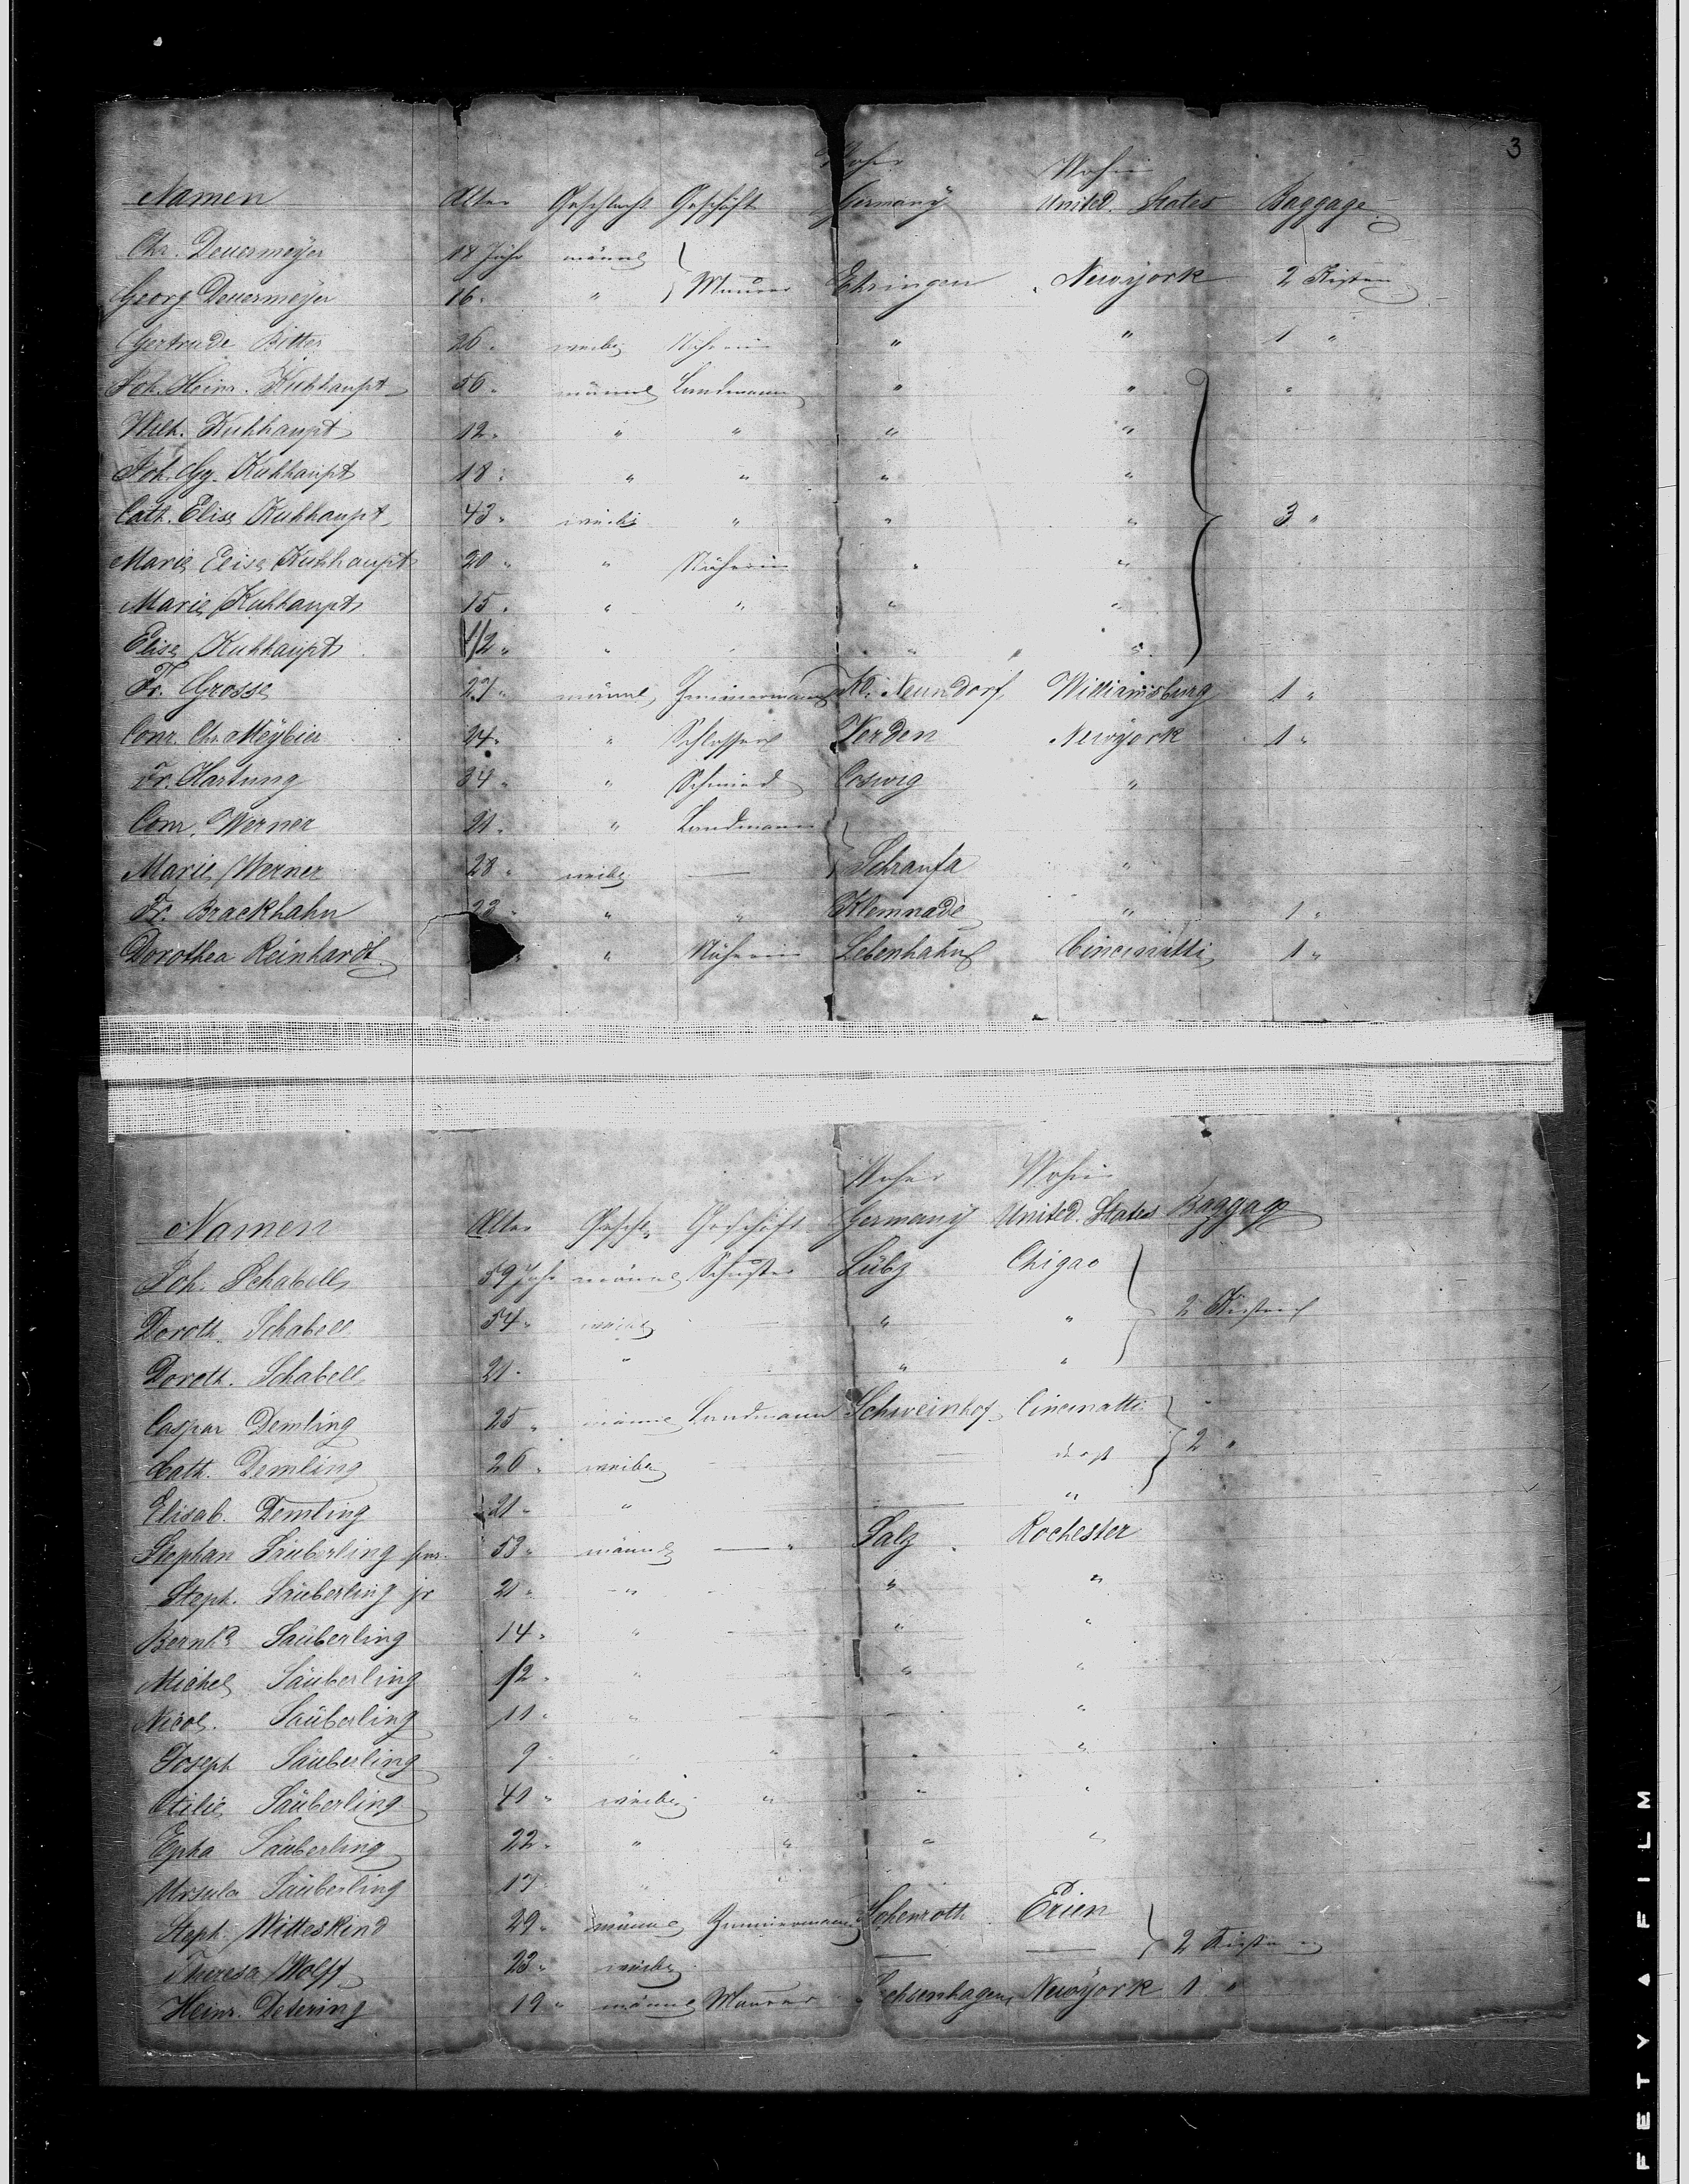 3
Woher Wohin
Namen Alter Geschlecht Geschäft Germany United. States Baggage
Chr. Deuermeyer 18 Jahr männl
Georg Deuermeyer 16 " " Maurer Ehringen Newyork 2 Kisten
Gertrude Bitter 26 " weibl Näherin " " 1 "
Joh. Heinr. Kuhhaupt 56 " männl Landmann " " "
Wilh. Kuhhaupt 12 " " " " "
Joh. Gg. Kuhhaupt 18 " " " " "
Cath. Elise Kuhhaupt 43 " weibl " " " 3 "
Marie Elise Kuhhaupt 20 " " Näherin " "
Marie Kuhhaupt 15 " " " " "
Elise Kuhhaupt 1/2 " " " " "
Fr. Grosse 27 " männl Zimmermann Kl. Neundorf Williamsburg 1 "
Conr. Chr. Meybier 24 " " Schlosser Verden Newyork 1 "
Fr. Hartung 34 " " Schmied Coswig "
Conr. Werner 21 " " Landmann
Marie Werner 28 " weibl — Schraufa "
Fr. Brackhahn " " " Klemnade " 1 "
Dorothea Reinhardt " " Näherin Lebenhahn Cincinatti 1 "
Woher Wohin
Namen Alter Geschl. Geschäft Germany United. States Baggage
Joh. Schabell 59 Jahr männl Schuster Lübz Chigao
Doroth. Schabell 54 " weibl — " " 2 Kisten
Doroth. Schabell 21 " " " "
Caspar Demling 25 " männl Landmann Schweinhof Cincinatti
Cath. Demling 26 " weibl — dort 2 "
Elisab. Demling 21 " " — "
Stephan Säuberling senr. 53 " männl — " Salz Rochester
Steph. Säuberling jr 20 " " " "
Bernhd Säuberling 14 " " " "
Michel Säuberling 12 " " " "
Nicol. Säuberling 11 " " "
Joseph Säuberling 9 " " " " "
Otilie Säuberling 41 " weibl " " "
Epha Säuberling 22 " " " " "
Ursula Säuberling 17 " "
Steph. Witteskind 29 " männl Zimmermann Schenroth Erien
Theresa Wolff 23 " weibl — — 2 Kisten
Heinr. Detering 19 " männl Maurer Newyork 1 "
FETY ▲ FILM